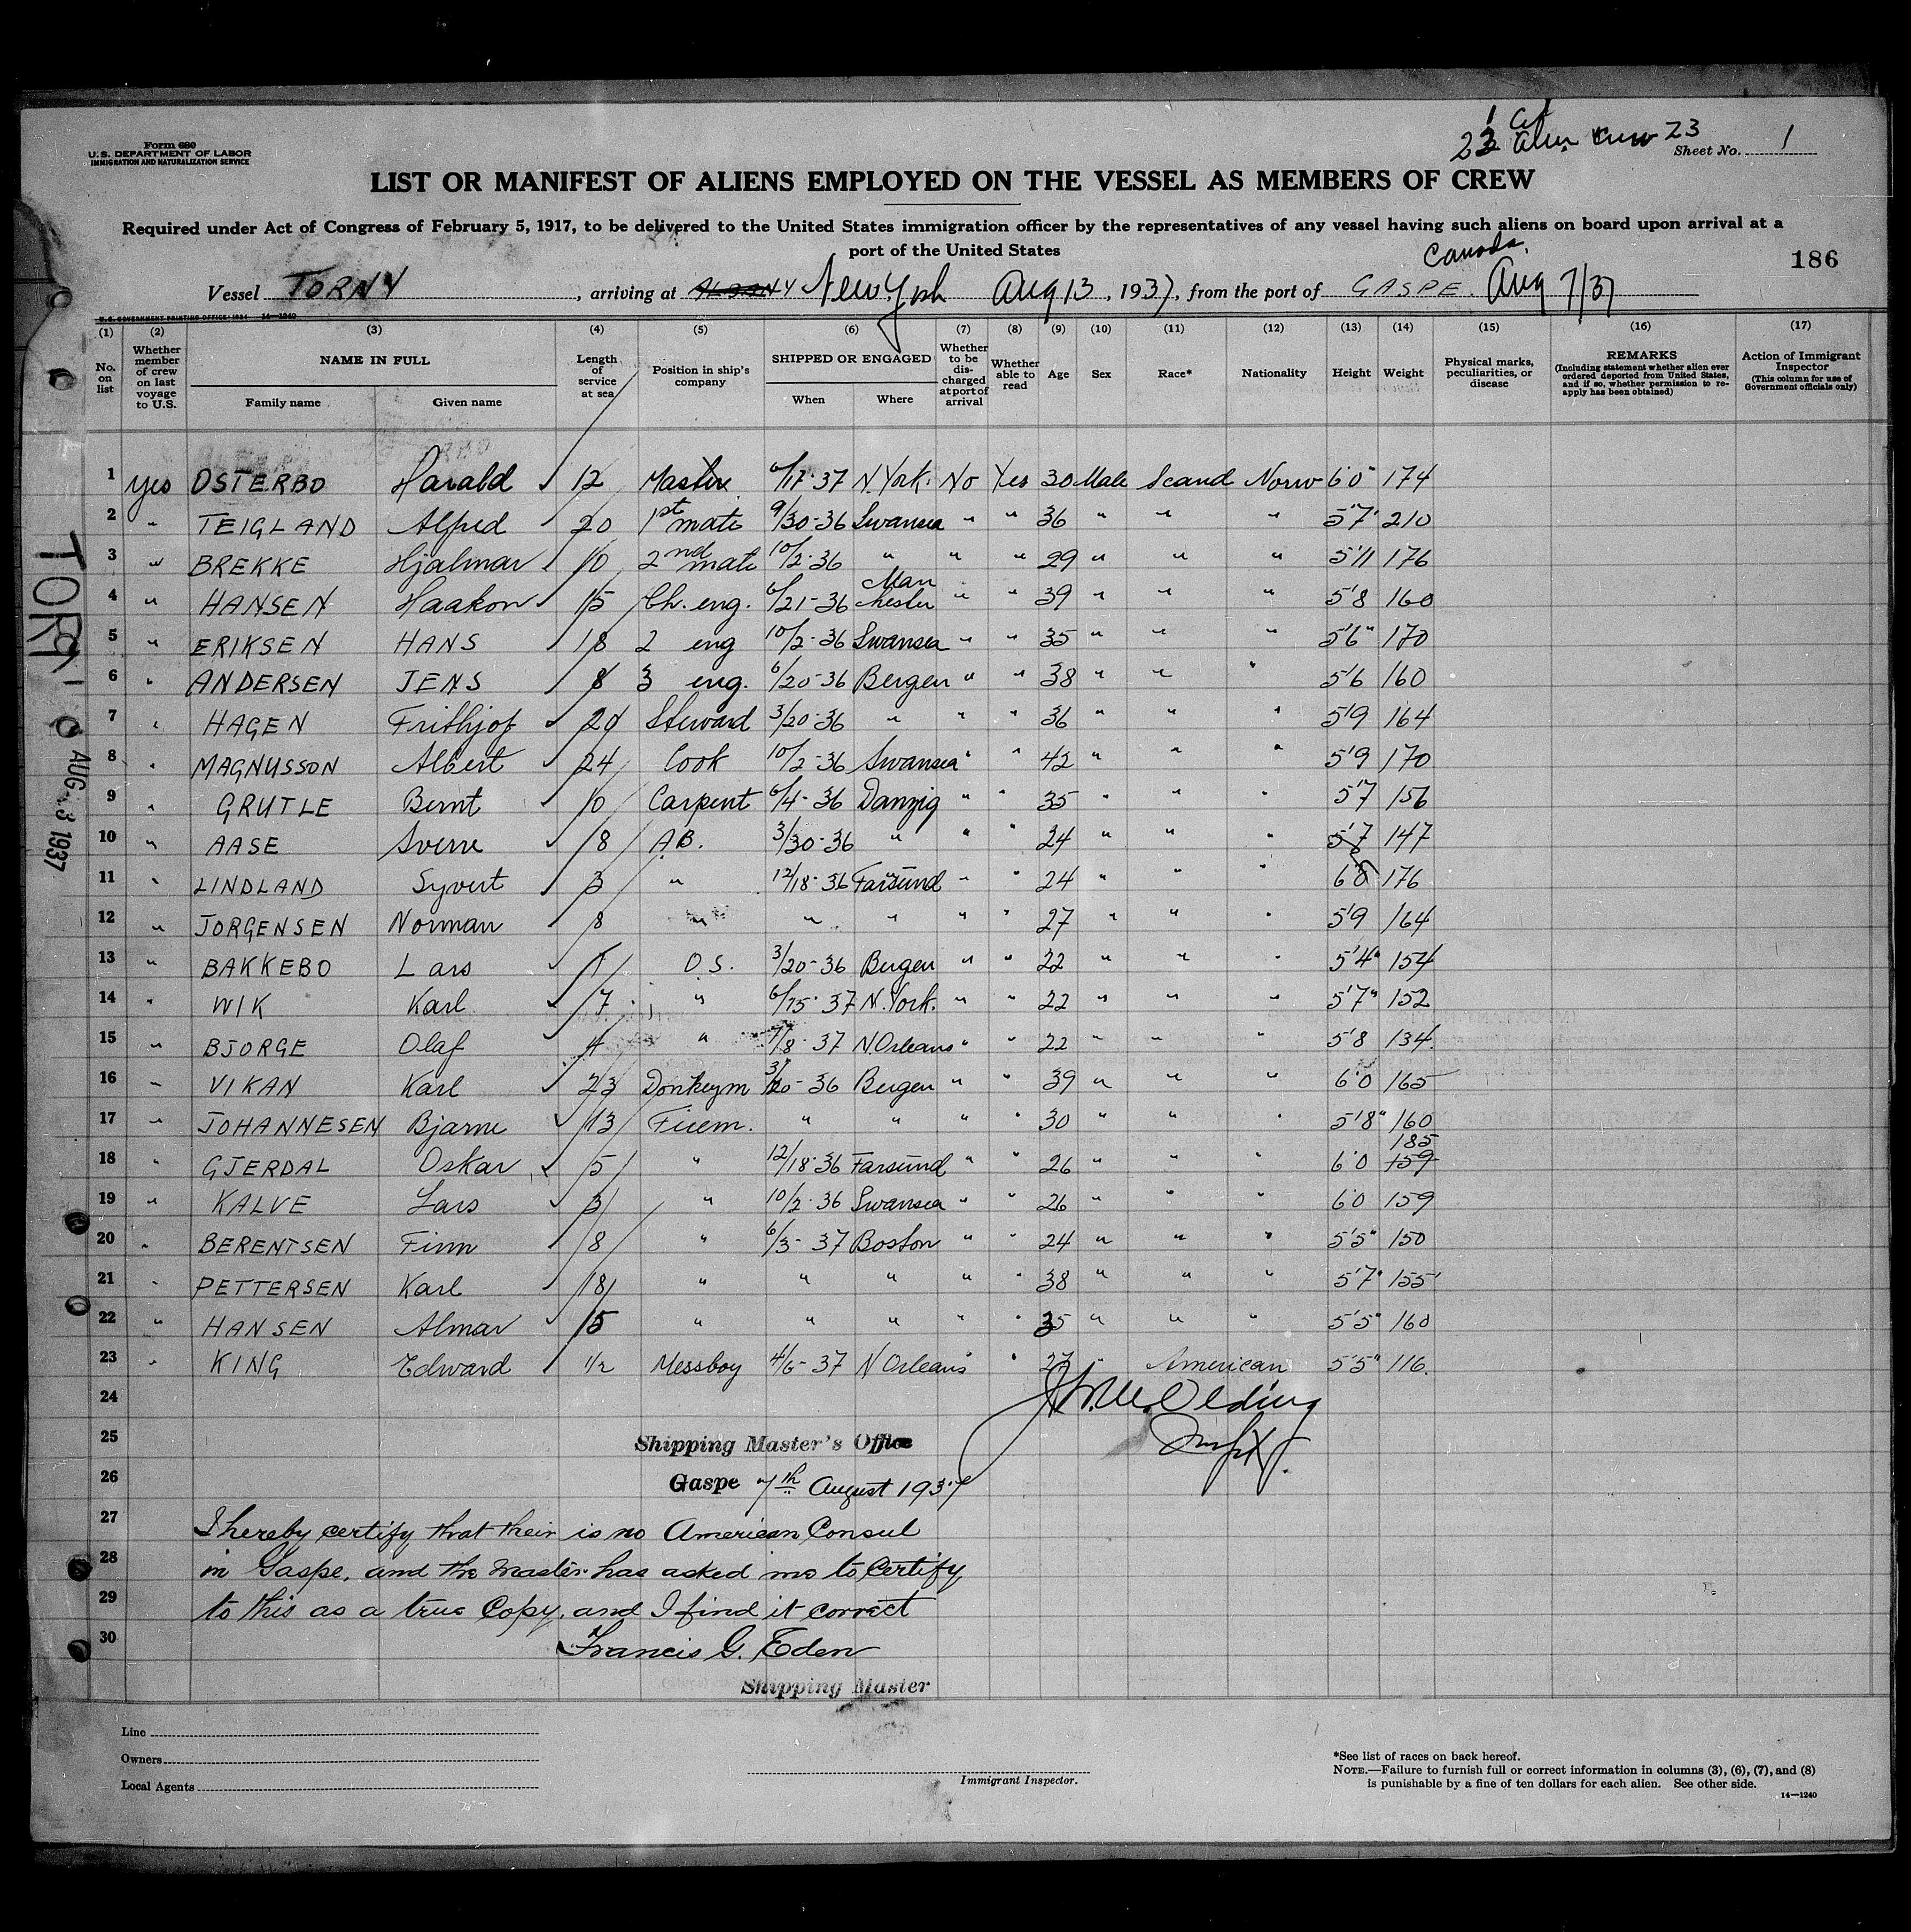 Form 680
U. S. DEPARTMENT OF LABOR
IMMIGRATION AND NATURALIZATION SERVICE
1 Cit
22 Alien Crew 23
Sheet No. 1
LIST OR MANIFEST OF ALIENS EMPLOYED ON THE VESSEL AS MEMBERS OF CREW
Required under Act of Congress of February 5, 1917, to be delivered to the United States immigration officer by the representatives of any vessel having such aliens on board upon arrival at a
port of the United States
186
Canada.
Vessel TORNY, arriving at ALBANY New York Aug 13, 1937, from the port of GASPE. Aug 7/37
U. S. GOVERNMENT PRINTING OFFICE: 1934 14—1240
(1) (2) (3) (4) (5) (6) (7) (8) (9) (10) (11) (12) (13) (14) (15) (16) (17)
No. on list
Whether member of crew on last voyage to U.S.
NAME IN FULL
Family name Given name
Length of service at sea
Position in ship's company
SHIPPED OR ENGAGED
When Where
Whether to be discharged at port of arrival
Whether able to read
Age Sex Race* Nationality Height Weight
Physical marks, peculiarities, or disease
REMARKS
(Including statement whether alien ever ordered deported from United States, and if so, whether permission to re-apply has been obtained)
Action of Immigrant Inspector
(This column for use of Government officials only)
1 Yes OSTERBO Harald 12 Master 6/17-37 N.York. No Yes 30 Male Scand Norw 6'0" 174
2 " TEIGLAND Alfred 20 1st mate 9/30-36 Swansea " " 36 " " " 5'7' 210
3 " BREKKE Hjalmar 10 2nd mate 10/2-36 " " " 29 " " " 5'11 176
4 " HANSEN Haakon 15 Ch. eng. 6/21-36 Manchester " " 39 " " " 5'8 160
5 " ERIKSEN HANS 18 2 eng 10/2-36 Swansea " " 35 " " " 5'6" 170
6 " ANDERSEN JENS 8 3 eng. 6/20-36 Bergen " " 38 " " " 5'6 160
7 " HAGEN Frithjof 20 Steward 3/20-36 " " " 36 " " " 5'9 164
8 " MAGNUSSON Albert 24 Cook 10/2-36 Swansea " " 42 " " " 5'9 170
9 " GRUTLE Bernt 10 Carpent 6/4-36 Danzig " " 35 " " " 5'7 156
10 " AASE Sverre 8 A.B. 3/30-36 " " " 24 " " " 5'7 147
11 " LINDLAND Syvert 3 " 12/18-36 Farsund " " 24 " " " 176
12 " JORGENSEN Norman 8 " " " " " 27 " " " 5'9 164
13 " BAKKEBO Lars O.S. 3/20-36 Bergen " " 22 " " " 5'4" 154
14 " WIK Karl 7 " 6/15-37 N.York. " " 22 " " " 5'7" 152
15 " BJORGE Olaf 4 " 7/8-37 N.Orleans " " 22 " " " 5'8 134.
16 " VIKAN Karl 23 Donkeym 3/20-36 Bergen " " 39 " " " 6'0 165
17 " JOHANNESEN Bjarne 13 Firem. " " " " 30 " " " 5'8" 160
185
18 " GJERDAL Oskar 5 " 12/18-36 Farsund " " 26 " " " 6'0 159
19 " KALVE Lars 3 " 10/2-36 Swansea " " 26 " " " 6'0 159
20 " BERENTSEN Finn 8 " 6/3-37 Boston " " 24 " " " 5'5" 150
21 " PETTERSEN Karl 18 " " " " " 38 " " " 5'7" 155
22 " HANSEN Almar 15 " " " " " 35 " " " 5'5" 160
23 " KING Edward 1/2 Messboy 4/6-37 N Orleans " " 27 " American 5'5" 116.
24
25 Shipping Master's Office
26 Gaspe 7th August 1937
27 I hereby certify that their is no American Consul
28 in Gaspe, and the master has asked me to certify
29 to this as a true Copy, and I find it correct
30 Francis G. Eden
Shipping Master
Line
Owners
Local Agents
Immigrant Inspector.
*See list of races on back hereof.
NOTE.—Failure to furnish full or correct information in columns (3), (6), (7), and (8)
is punishable by a fine of ten dollars for each alien. See other side.
14—1240
AUG 13 1937